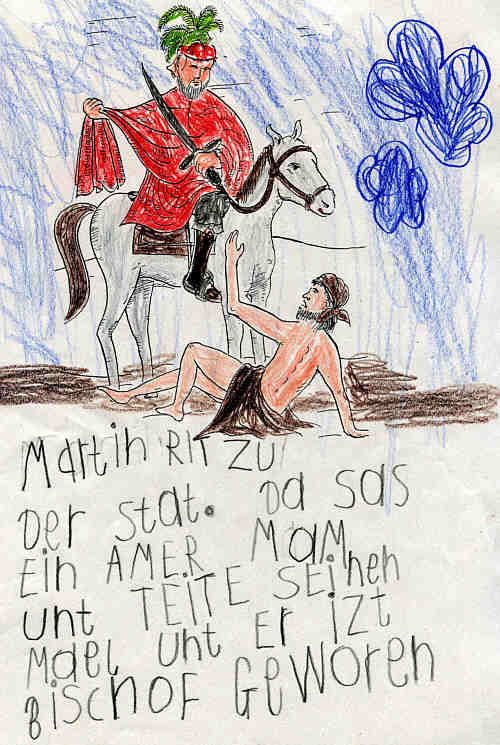 Martin Rit zu
Der Stat. Da sas
Ein AMER MaM
unt TEiTE SEinen
Mael unt Er izt
Bischof Geworen